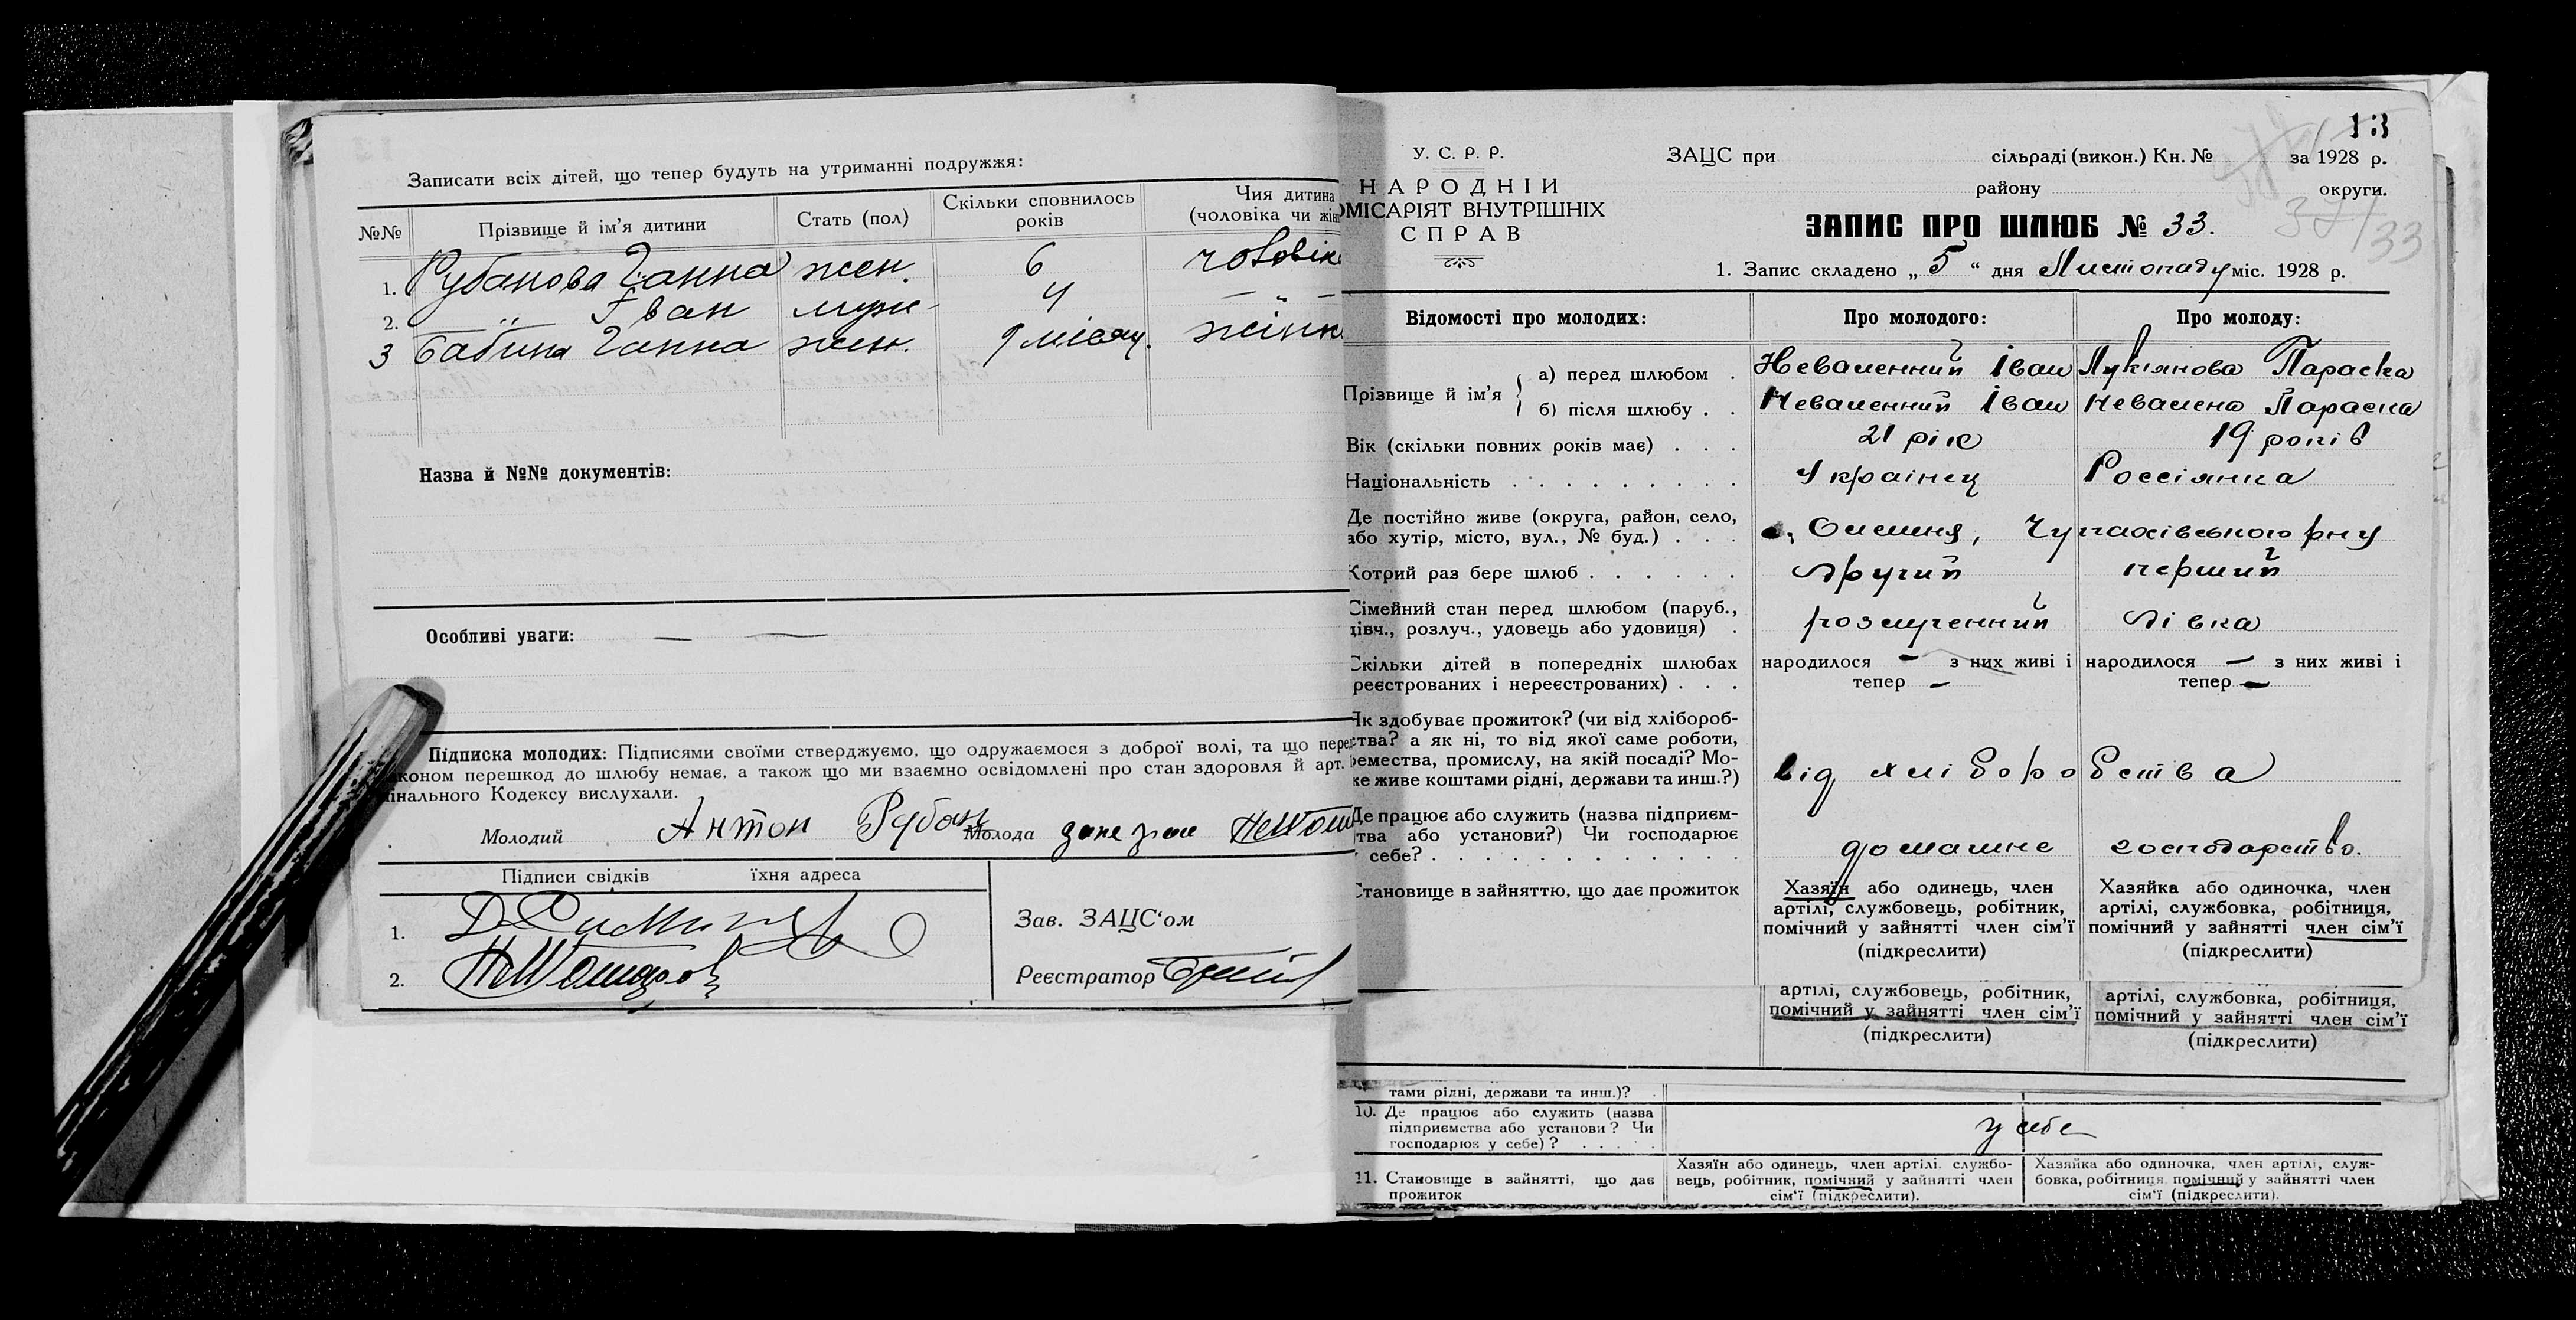 Записати всіх дітей, що тепер будуть на утриманні подружжя:
№№ Прізвище й ім'я дитини Стать (пол) Скільки сповнилось років Чия дитина (чоловіка чи жін
1. Рубанова Ганна жен. 6 чоловік
2. " Іван муж - 4 "
3 Бабина Ганна жен. 9 місяц. жінк
Назва й №№ документів:
Особливі уваги: — —
Підписка молодих: Підписями своїми стверджуємо, що одружаємося з доброї волі, та що перед
законом перешкод до шлюбу немає, а також що ми взаємно освідомлені про стан здоровля й арт.
мінального Кодексу вислухали.
Молодий Антон Рубан Молода
Підписи свідків їхня адреса
1.
2.
Зав. ЗАЦС'ом
Реєстратор
13
У. С. Р. Р.
НАРОДНІЙ
ОМІСАРІЯТ ВНУТРІШНІХ
СПРАВ
ЗАЦС при сільраді (викон.) Кн. № за 1928 р.
району округи.
ЗАПИС ПРО ШЛЮБ № 33.
37/33
1. Запис складено „ 5 “ дня Листопаду міс. 1928 р.
Відомості про молодих: Про молодого: Про молоду:
Прізвище й ім'я { а) перед шлюбом . Неваленний Іван Лукіянова Параска
б) після шлюбу . . Неваленний Іван Невалена Параска
Вік (скільки повних років має) . . . 21 рік 19 років
Національність . . . Українец Россіянка
Де постійно живе (округа, район, село,
або хутір, місто, вул., № буд.) . . . с. Олешня, Чупахівського рну
Котрий раз бере шлюб . . . Другий перший
Сімейний стан перед шлюбом (паруб.,
дівч., розлуч., удовець або удовиця) . розлученний Дівка
Скільки дітей в попередніх шлюбах
реєстрованих і нереєстрованих) . . . народилося — з них живі і тепер — народилося — з них живі і тепер —
Як здобуває прожиток? (чи від хлібороб-
ства? а як ні, то від якої саме роботи,
ремества, промислу, на якій посаді? Мо-
же живе коштами рідні, держави та инш.?) від хліборобства
Де працює або служить (назва підприєм-
тва або установи?) Чи господарює
у себе? . . . домашнє господарство.
Становище в зайняттю, що дає прожиток
Хазяїн або одинець, член
артілі, службовець, робітник,
помічний у зайнятті член сім'ї
(підкреслити)
Хазяйка або одиночка, член
артілі, службовка, робітниця,
помічний у зайнятті член сім'ї
(підкреслити)
артілі, службовець, робітник,
помічний у зайнятті член сім'ї
(підкреслити)
артілі, службовка, робітниця,
помічний у зайнятті член сім'ї
(підкреслити)
тами рідні, держави та инш.)?
10. Де працює або служить (назва
підприємства або установи? Чи
господарює у себе)? . . . у себе
11. Становище в зайнятті, що дає
прожиток
Хазяїн або одинець, член артілі, службо-
вець, робітник, помічний у зайнятті член
сім'ї (підкреслити).
Хазяйка або одиночка, член артілі, служ-
бовка, робітниця, помічний у зайнятті член
сім'ї (підкреслити).